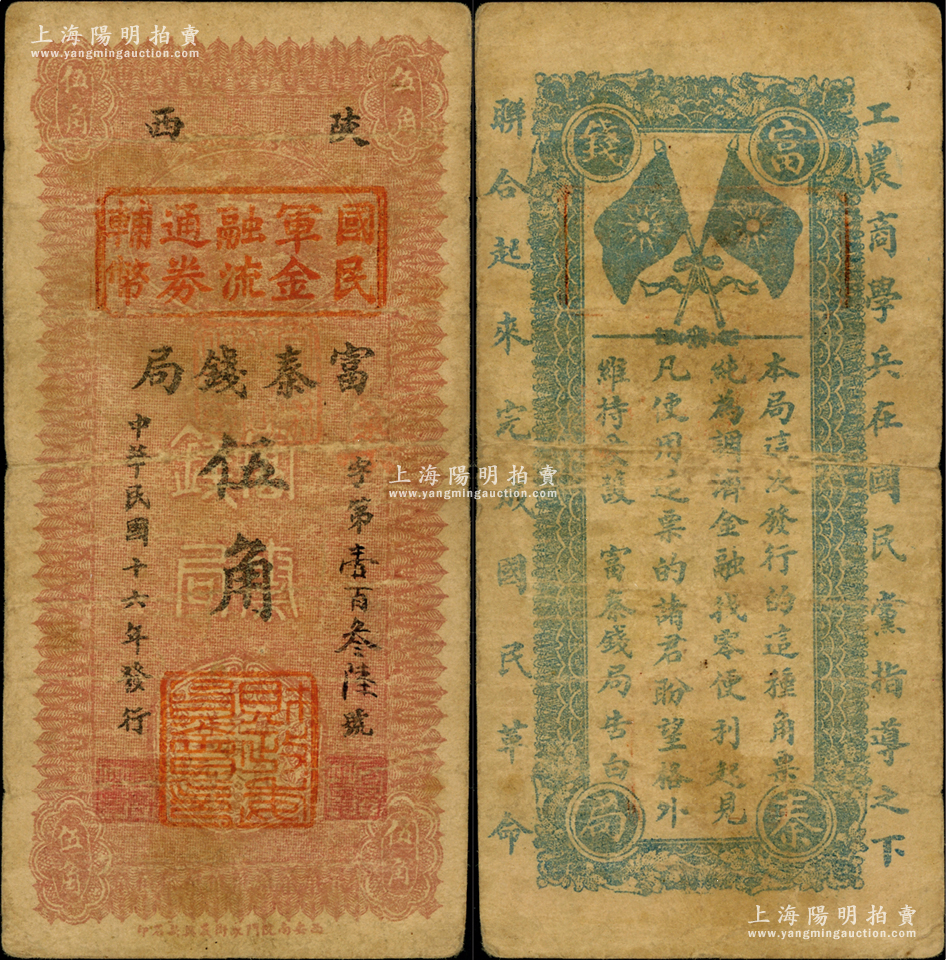 上海陽明拍賣
www.yangmingauction.com
伍角
伍角
陝西
國民軍金融流通券輔幣
富秦錢局
字第壹百叁陸號
伍角
富秦錢局
中華民國十六年發行
伍角
伍角
上海陽明拍賣
www.yangmingauction.com
工農商學兵在國民黨指導之下
富錢
秦局
本局這次發行的這種角票
純為調濟金融找零便利起見
凡使用之票的諸君盼望格外
維持 富秦錢局告白
聯合起來完成國民革命
上海陽明拍賣
www.yangmingauction.com